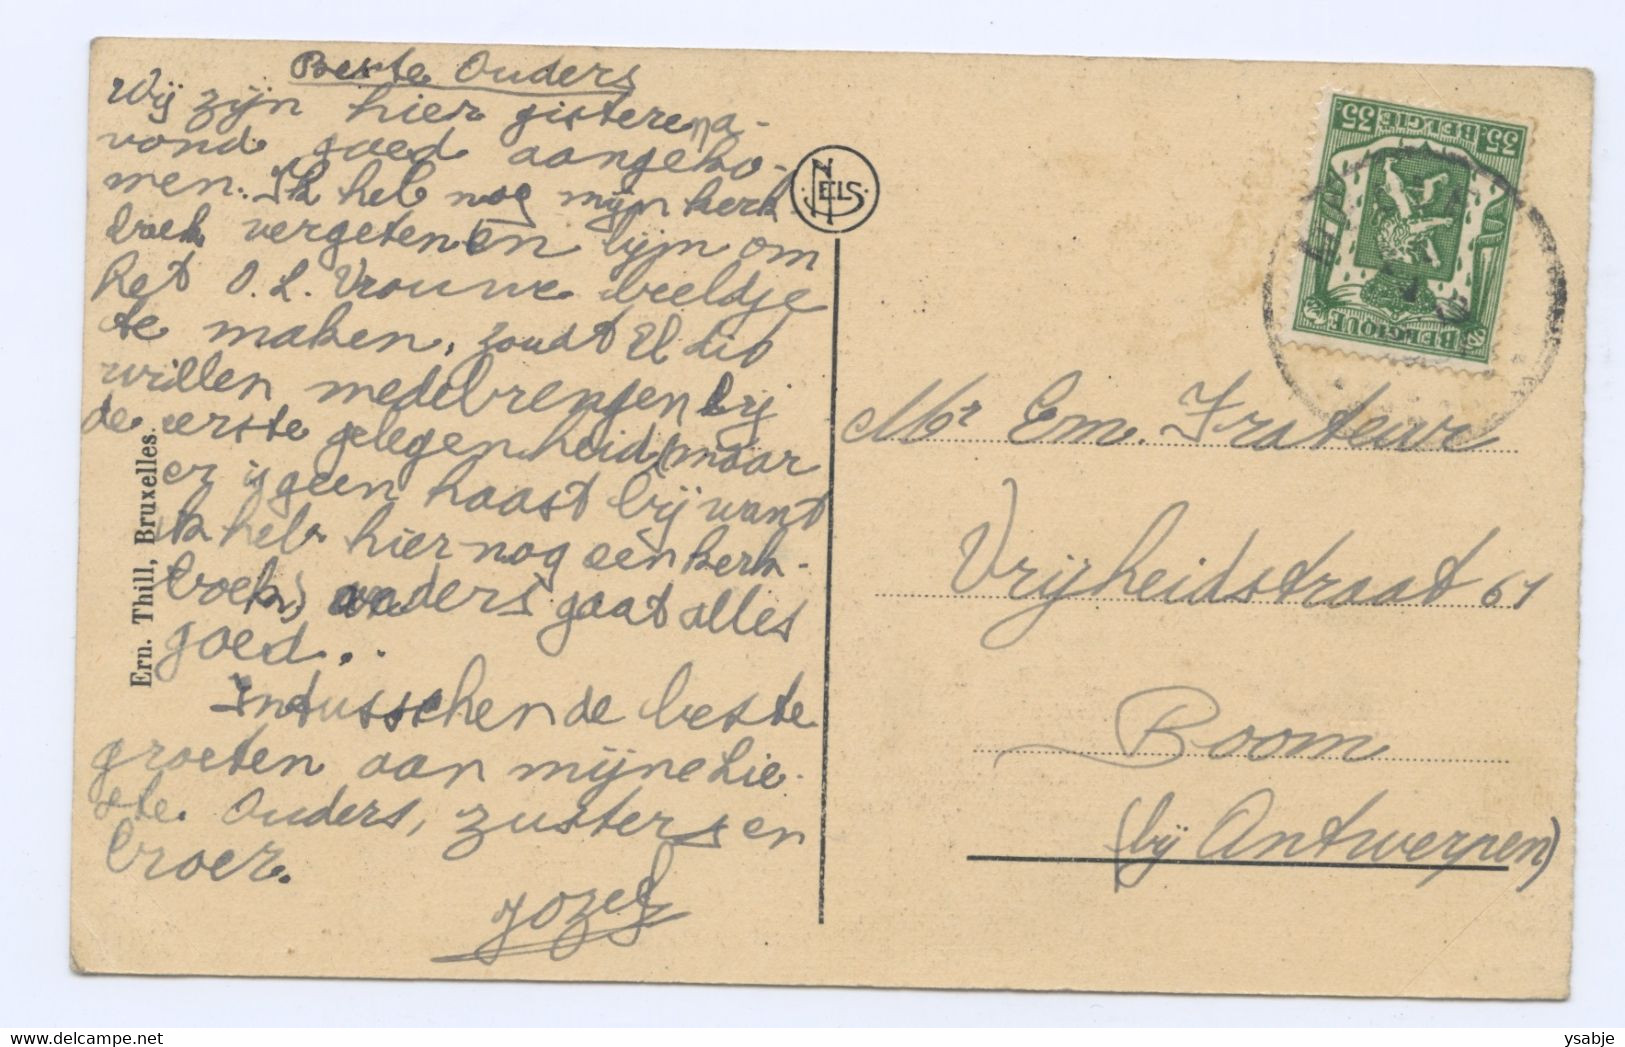 Beste Ouders
Wij zijn hier gisterena-
vond goed aangeko-
men. Ik heb nog mijn kerk
broek vergeten en lijm om
het O. L. Vrouwe beeldje
te maken, zoudt U dit
willen medebrengen bij
de eerste gelegenheid, maar
er is geen haast bij want
ik heb hier nog een kerk-
broek, anders gaat alles
goed..
Intusschen de beste
groeten aan mijne lie-
ste Ouders, zusters en
broer.
Jozef
Ern. Thill, Bruxelles.
NELS
35 BELGIË 35
BELGIQUE
Mr Em. Frateur
Vrijheidstraat 61
Boom
(bij Antwerpen)
ysabje
www.delcampe.net